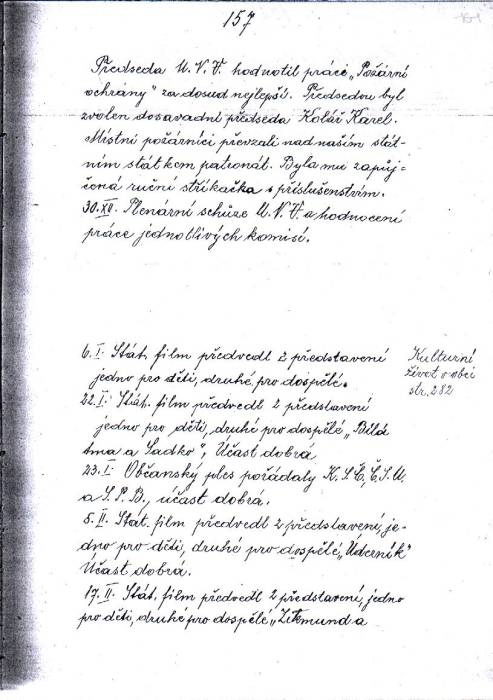 157
Předseda M.N.V. hodnotil práci „Požární
ochrany" za dosud nejlepší. Předsedou byl
zvolen dosavadní předseda Kolář Karel.
Místní požárníci převzali nad naším stát-
ním státkem patronát. Byla mu zapůj-
čená ruční stříkačka s příslušenstvím.
30.XII. Plenární schůze M.N.V. a hodnocení
práce jednotlivých komisí.
6.I. Stát. film předvedl 2 představení
jedno pro děti, druhé pro dospělé.
Kulturní
život v obci
str. 282
22.I. Stát. film předvedl 2 představení
jedno pro děti, druhé pro dospělé „Bílá
tma a Sadko", Účast dobrá
23.I. Občanský ples pořádaly K.S.Č, Č.S.M.
a S.P.B., účast dobrá.
5.II. Stát. film předvedl 2 představení, je-
dno pro děti, druhé pro dospělé „Úderník"
Účast dobrá.
17.II. Stát. film předvedl 2 představení, jedno
pro děti, druhé pro dospělé „Zikmund a